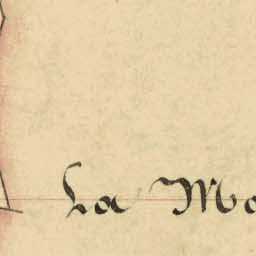 La Mo